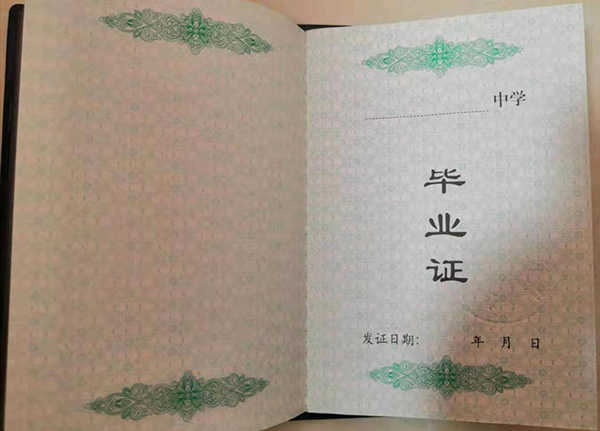 中学
毕
业
证
发证日期: 年 月 日